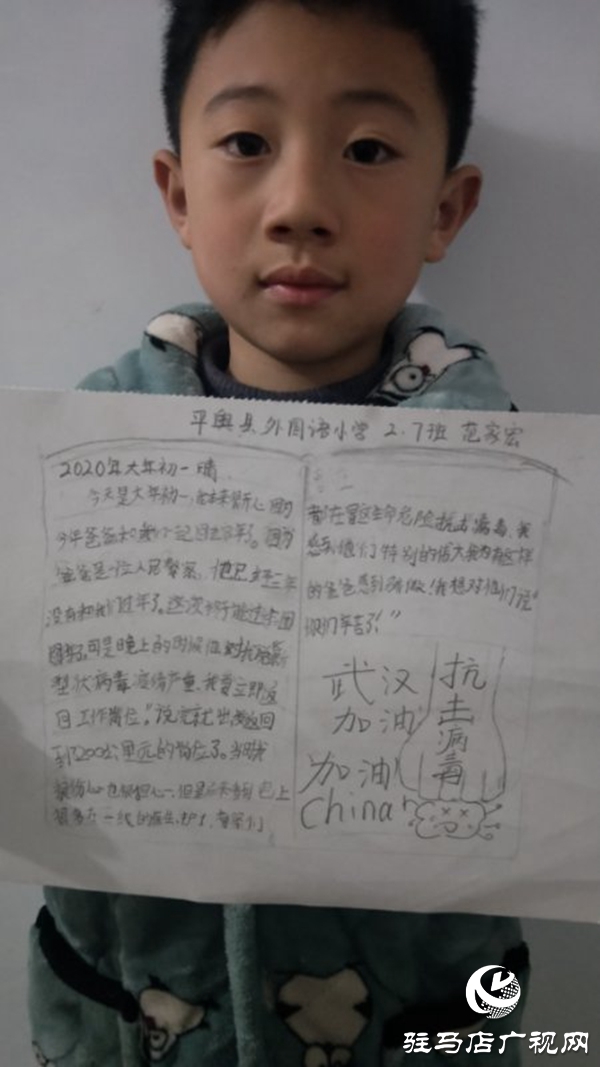 平舆县外国语小学 2.7班 范家宏
2020年大年初一晴
今天是大年初一,我非常开心因为
今年爸爸和我们一起回去过年了。因为
爸爸是一位人民警察,他已经三年
没有和我们过年了。这次终于能过个团
圆年了可是晚上的时候他
型状病毒疫情严重,我要立即返
回工作岗位。"说完就出发返回
到1200公里远的岗位了。当时我
很伤心也很担心,但是
很多在一线的医生、护士、警察们
都在冒这生命危险抗击病毒、我
感到他们特别的伟大我为有这样
的爸爸感到骄傲!我想对他们说"
你们辛苦了!"
武汉
加油
加油
China
抗
击
病
毒
驻马店广视网